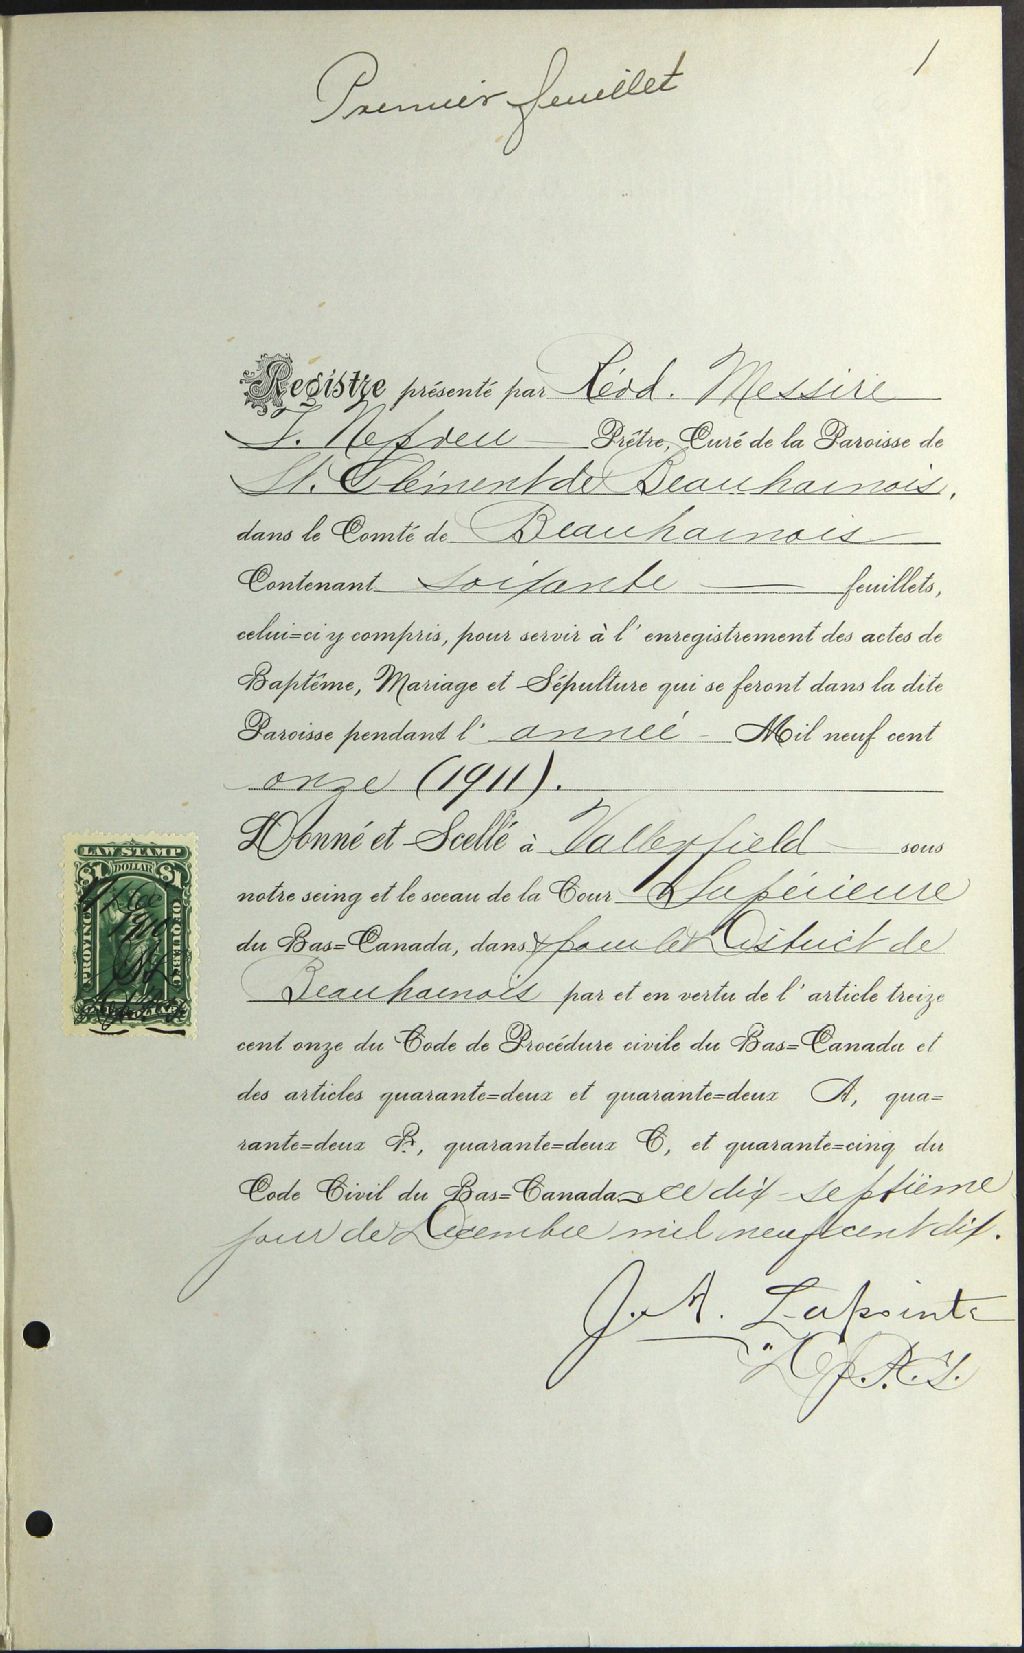 1
Premier feuillet
Registre présenté par Révd. Messire
F. Nepveu Prêtre, Curé de la Paroisse de
St. Clément de Beauharnois,
dans le Comté de Beauharnois
Contenant soixante feuillets,
celui=ci y compris, pour servir à l'enregistrement des actes de
Baptême, Mariage et Sépulture qui se feront dans la dite
Paroisse pendant l'année Mil neuf cent
onze (1911).
Donné et Scellé à Valleyfield sous
notre seing et le sceau de la Cour Supérieure
du Bas=Canada, dans & pour le District de
Beauharnois par et en vertu de l'article treize
cent onze du Code de Procédure civile du Bas=Canada et
des articles quarante=deux et quarante=deux A, qua=
rante=deux B, quarante=deux C, et quarante=cinq du
Code Civil du Bas=Canada ce dix-septième
jour de Décembre mil neuf cent dix.
J. A. Lapointe
D. P. C. S.
LAW STAMP
$1 DOLLAR $1
PROVINCE OF QUEBEC
1910